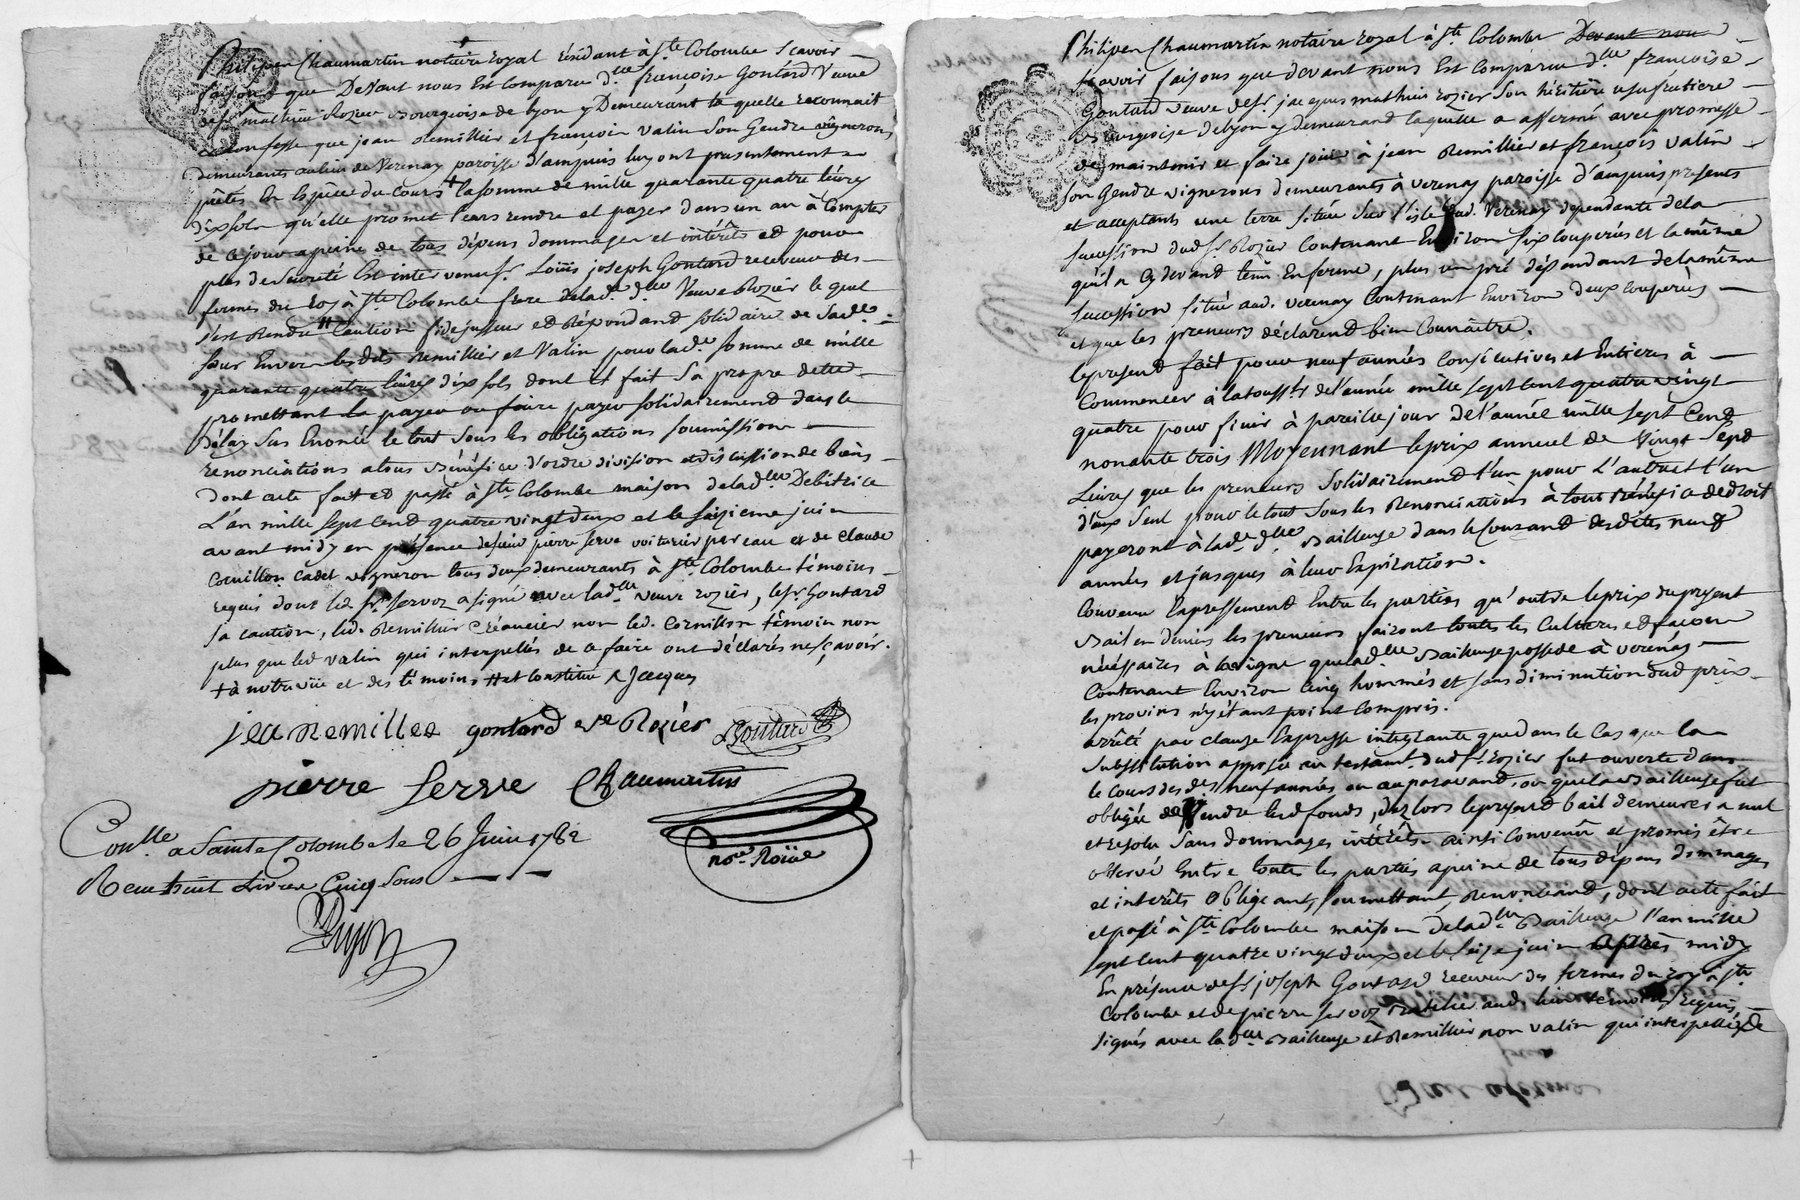 Philipen Chaumartin notaire royal résidant à Ste. Colombe Scavoir
faisons que Devant nous Est Comparue dlle. françoise Gontard Veuve
de Sr. mathieu Rozier Bourgeoise de Lyon y Demeurant la quelle reconnait
et Confesse que jean Remillier et françois Valin Son Gendre vignerons
demeurants au lieu de Verenay paroisse d'ampuis luy ont presentement
prêtés En Espèces du Cours + la somme de mille quarante quatre livres
dix sols qu'elle promet leurs rendre et payer dans un an à Compter
de ce jour a peine de tous dépens dommages et intérêts et pour
plus de sureté Est intervenu Sr. Loüis joseph Gontard receveur des
fermes du roy à Ste. Colombe frere de lad. dlle. Veuve Rozier le quel
s'est Rendu # Caution fidejusseur et Répondant solidaire de Sade.
Sœur Envers lesdts. Remillier et Valin pour lade. Somme de mille
quarante quatre livres dix sols dont il fait Sa propre dette
promettant la payer ou faire payer solidairement dans le
délay Sus Enoncé le tout Sous les obligations Soumissions
renonciations a tous Bénéfice d'ordre division et discussion de biens
dont acte fait et passé à Ste. Colombe maison de lade. dlle. Debitrice
L'an mille sept Cent quatre vingt deux et le Seizieme juin
avant midy en présence de sieur pierre Serve voiturier par eau et de Claude
Cornillon Cadet vigneron tous deux demeurants à Ste. Colombe témoins
requis dont led. Sr. Servoz a signé avec lade. dlle. veuve rozier, le Sr. Gontard
sa caution, led. Remillier Créancier non led. Cornillon témoin non
plus que led valin qui interpellés de ce faire ont déclarés ne sçavoir.
+ à notre vüe et des témoins # et Constitué ^ Jacques
jean Remillee gontard ve Rozier Gontard
pierre Serve Chaumartin
nore. Roïiae
Conlle a Sainte Colombe le 26 Juin 1782
Receu huit Livres Cinq Sous
Philipen Chaumartin notaire royal à Ste. Colombe Devant nous
Scavoir faisons que devant nous Est Comparue dlle. francoise
Gontard veuve de Sr. jacques mathieu rozier Son héritière usufruitiere
Bourgeoise de lyon y demeurand laquelle a affermé avec promesse
de maintenir et faire jouir à jean Remillier et françois valin
Son Gendre vignerons demeurants à verenay paroisse d'ampuis presents
et acceptants une terre Située Sur l'isle dud. Verenay dependante dela
sucession dud. Sr. Rozier Contenant Environ Six couperées et la même
qu'il a Cy devand tenü En ferme, plus un pré dépendant de la même
succession situé aud. verenay Contenant Environ deux couperées
et que les preneurs déclarend bien Connaitre.
le present fait pour neuf années Consécutives et Entieres à
Commencer à la toussts. de l'année mille Sept Cent quatre vingt
quatre pour finir à pareille jour de l'année mille Sept Cend
nonante trois Moyennant le prix annuel de Vingt Sept
Livres que les preneurs Solidairement l'un pour L'autre et l'un
d'eux Seul pour le tout Sous les Renonciations à tout bénéfice de droit
payeront à lade. dlle. Bailleuse dans le Courand desdites neuf
années et jusques à leur Expiration.
Convenu Expressement Entre les parties qu'outre le prix du present
Bail en deniers les preneurs fairont toutes les Cultures et facons
nécéssaires à la vigne que lad. dlle. Bailleuse possede à verenay
Contenant Environ Cinq hommés et Sans diminution dud prix
les provins n'y étant point Compris.
arrêté par clause Expresse integrante que dans le Cas que la
Substitution apposée au testamt. dud. Sr. rozier fut ouverte dans
le cours des des. neuf années ou auparavand, ou que la Bailleuse fut
obligée de Vendre lesd fonds, dez lors le present bail demeurera nul
et résolu Sans dommages intérêts ainsi Convenü et promis être
observé Entre toutes les parties apeine de tous dépens dommages
et intérêts Obligeant, Soumettant, Renonciand, dont acte fait
et passé à Ste. Colombe maison de lade. dlle. Bailleuse l'an mille
sept Cent quatre vingt deux et le Seize juin Après midy
En présence de Sr. joseph Gontard receveur des fermes du roy à Ste.
Colombe et de pierre Servoz Batelier aud. lieu témoins requis
signés avec la dlle. Bailleuse et Remillier non valin qui interpellé de